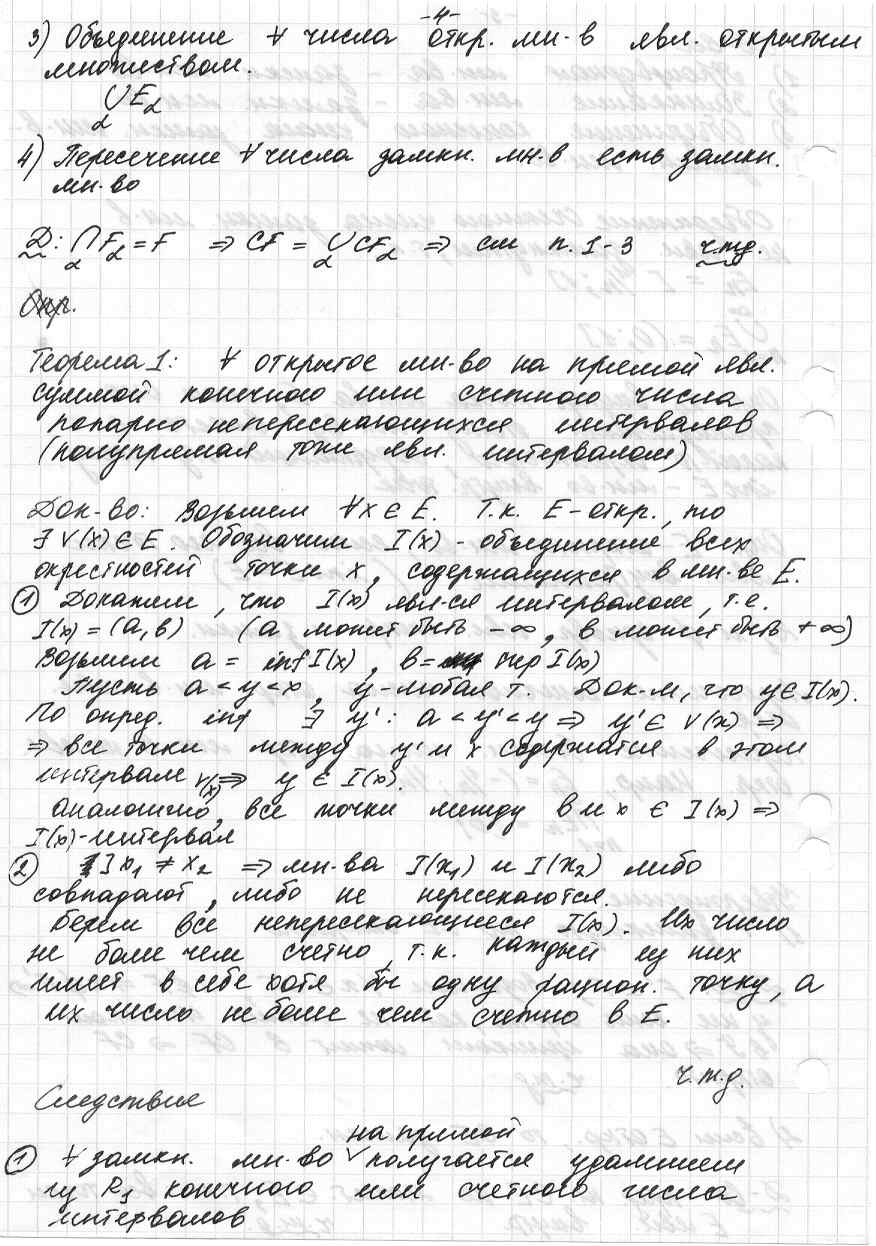 -4-
3) Объединение ∀ числа откр. мн-в явл. открытым
множеством.
⋃E_α
α
4) Пересечение ∀ числа замкн. мн-в есть замкн.
мн-во
Д: ⋂F_α = F ⇒ CF = ⋃CF_α ⇒ см п. 1-3 ч.т.д.
Опр.
Теорема 1: ∀ открытое мн-во на прямой явл.
суммой конечного или счетного числа
попарно непересекающихся интервалов
(полупрямая тоже явл. интервалом)
Док-во: Возьмем ∀x ∈ E. Т.к. E-откр., то
∃ V(x) ∈ E. Обозначим I(x) - объединение всех
окрестностей точки x, содержащихся в мн-ве E.
① Докажем, что I(x) явл-ся интервалом, т.е.
I(x) = (a, в) (a может быть -∞, в может быть +∞)
Возьмем a = inf I(x), в = sup I(x)
Пусть a < y < x, y-любая т. Док-м, что y ∈ I(x).
По опред. inf ∃ y': a < y' < y ⇒ y' ∈ V(x) ⇒
⇒ все точки между y' и x содержатся в этом
интервале V(x) ⇒ y ∈ I(x).
аналогично, все точки между в и x ∈ I(x) ⇒
I(x)-интервал
② ] x₁ ≠ x₂ ⇒ мн-ва I(x₁) и I(x₂) либо
совпадают, либо не пересекаются.
Берем все непересекающиеся I(x). Их число
не более чем счетно, т.к. каждый из них
имеет в себе хотя бы одну рацион. точку, а
их число не более чем счетно в E.
ч.т.д.
Следствия
① ∀ замкн. мн-во на прямой получается удалением
из R₁ конечного или счетного числа
интервалов